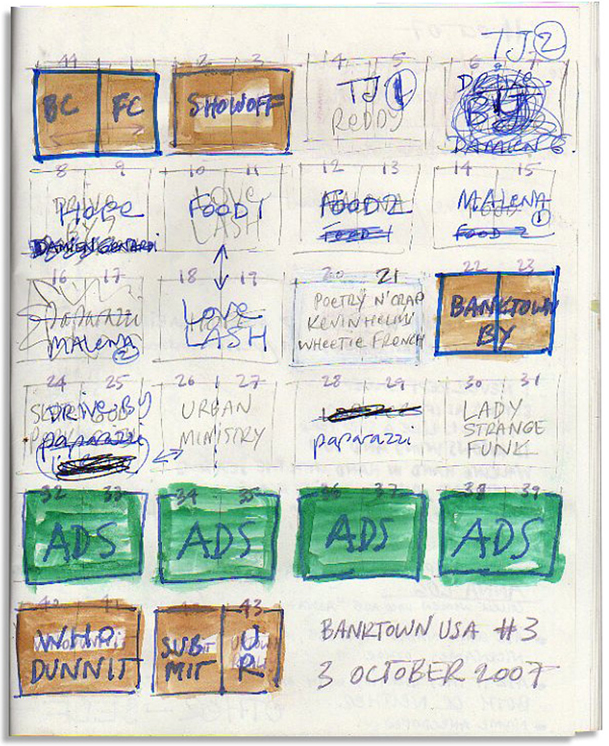 TJ 2
44 1 2 3 4 5 6 7
BC FC SHOWOFF TJ 1 DRIVE
REDDY BY
DAMIEN G.
8 9 10 11 12 13 14 15
HOPE FOOD 1 FOOD 2 MALENA 1
LASH FOOD 1 FOOD 2
16 17 18 19 20 21 22 23
paparazzi LOVE POETRY N' CRAP BANKTOWN
MALENA 2 LASH KEVIN HELIN BY
WHEETIE FRENCH
24 25 26 27 28 29 30 31
DRIVE-BY URBAN LADY
paparazzi MINISTRY paparazzi STRANGE
FUNK
32 33 34 35 36 37 38 39
ADS ADS ADS ADS
40 41 43
WHO SUB U BANKTOWN USA #3
DUNNIT MIT R 3 OCTOBER 2007